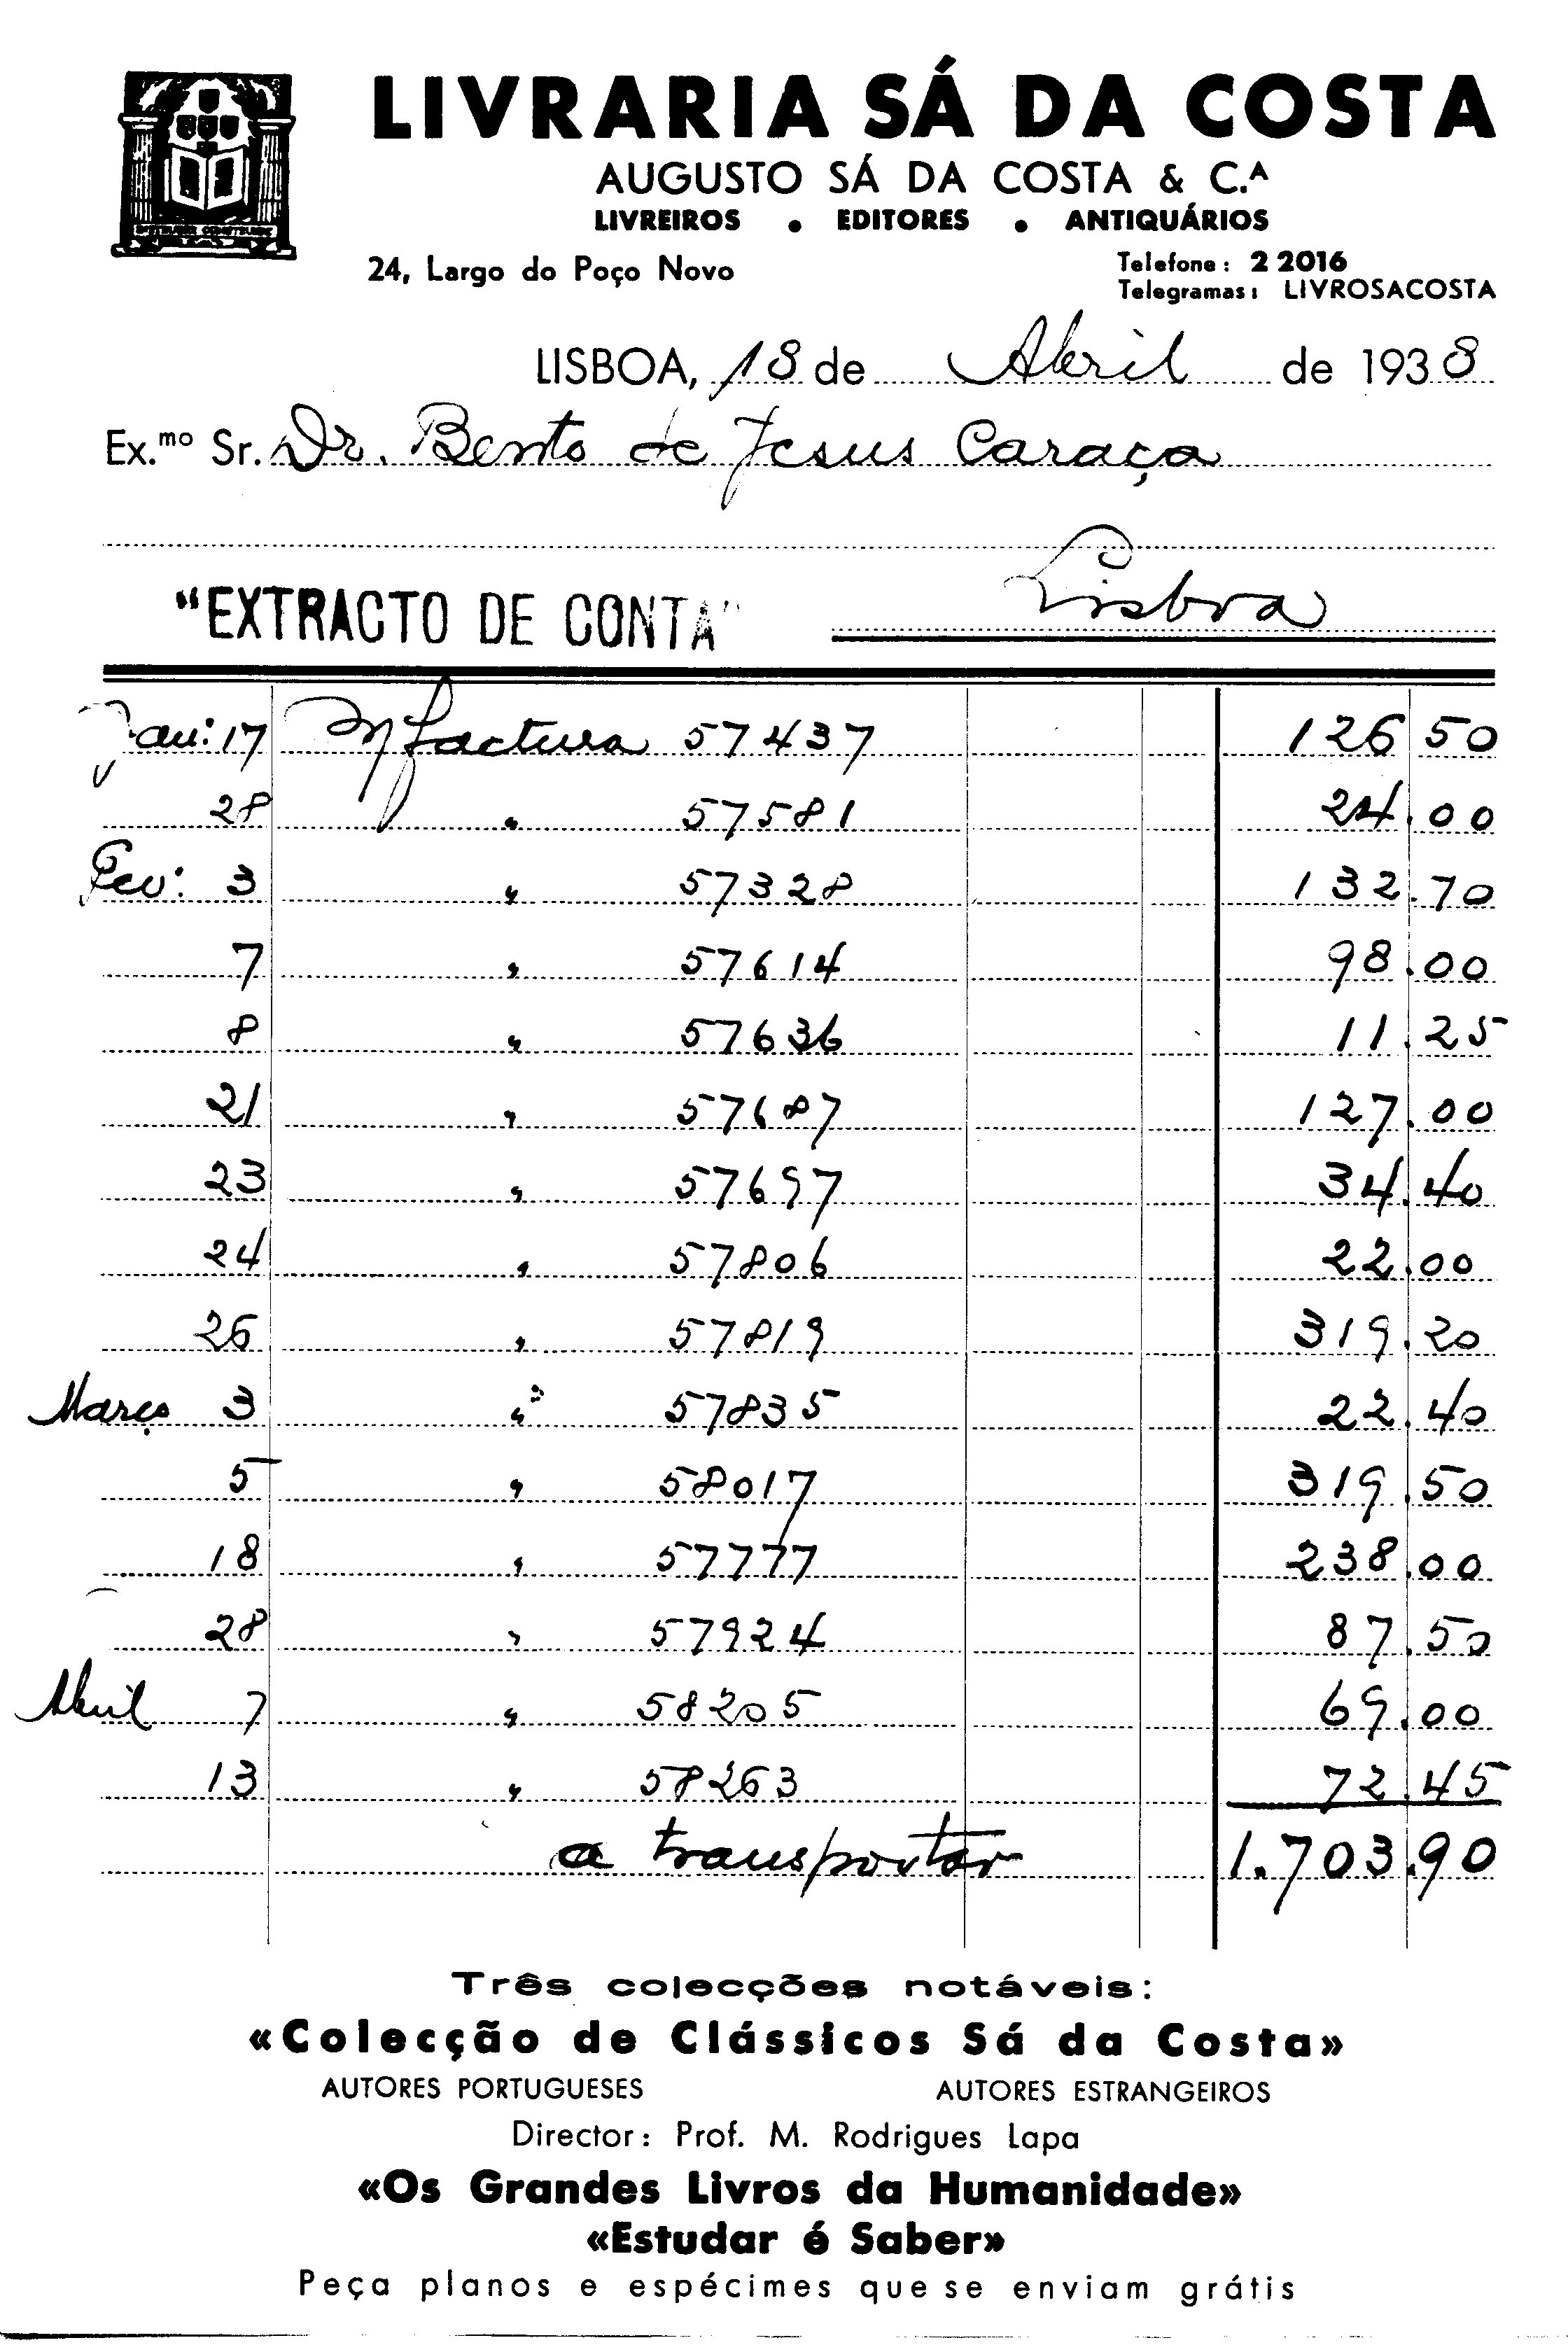 LIVRARIA SÁ DA COSTA
AUGUSTO SÁ DA COSTA & C.ᴬ
LIVREIROS • EDITORES • ANTIQUÁRIOS
24, Largo do Poço Novo
Telefone: 2 2016
Telegramas: LIVROSACOSTA
LISBOA, 18 de Abril de 1938
Ex.mo Sr. Dr. Bento de Jesus Caraça
Lisboa
"EXTRACTO DE CONTA"
Jan: 17 factura 57437 126 50
28 " 57581 24.00
Fev: 3 " 57328 132.70
7 " 57614 98.00
8 " 57636 11.25
21 " 57687 127.00
23 " 57697 34.40
24 " 57806 22.00
26 " 57819 319.20
Março 3 " 57835 22.40
5 " 58017 319.50
18 " 57777 238.00
28 " 57924 87.50
Abril 7 " 58205 69.00
13 " 58263 72.45
a transportar 1.703.90
Três colecções notáveis:
«Colecção de Clássicos Sá da Costa»
AUTORES PORTUGUESES AUTORES ESTRANGEIROS
Director: Prof. M. Rodrigues Lapa
«Os Grandes Livros da Humanidade»
«Estudar é Saber»
Peça planos e espécimes que se enviam grátis